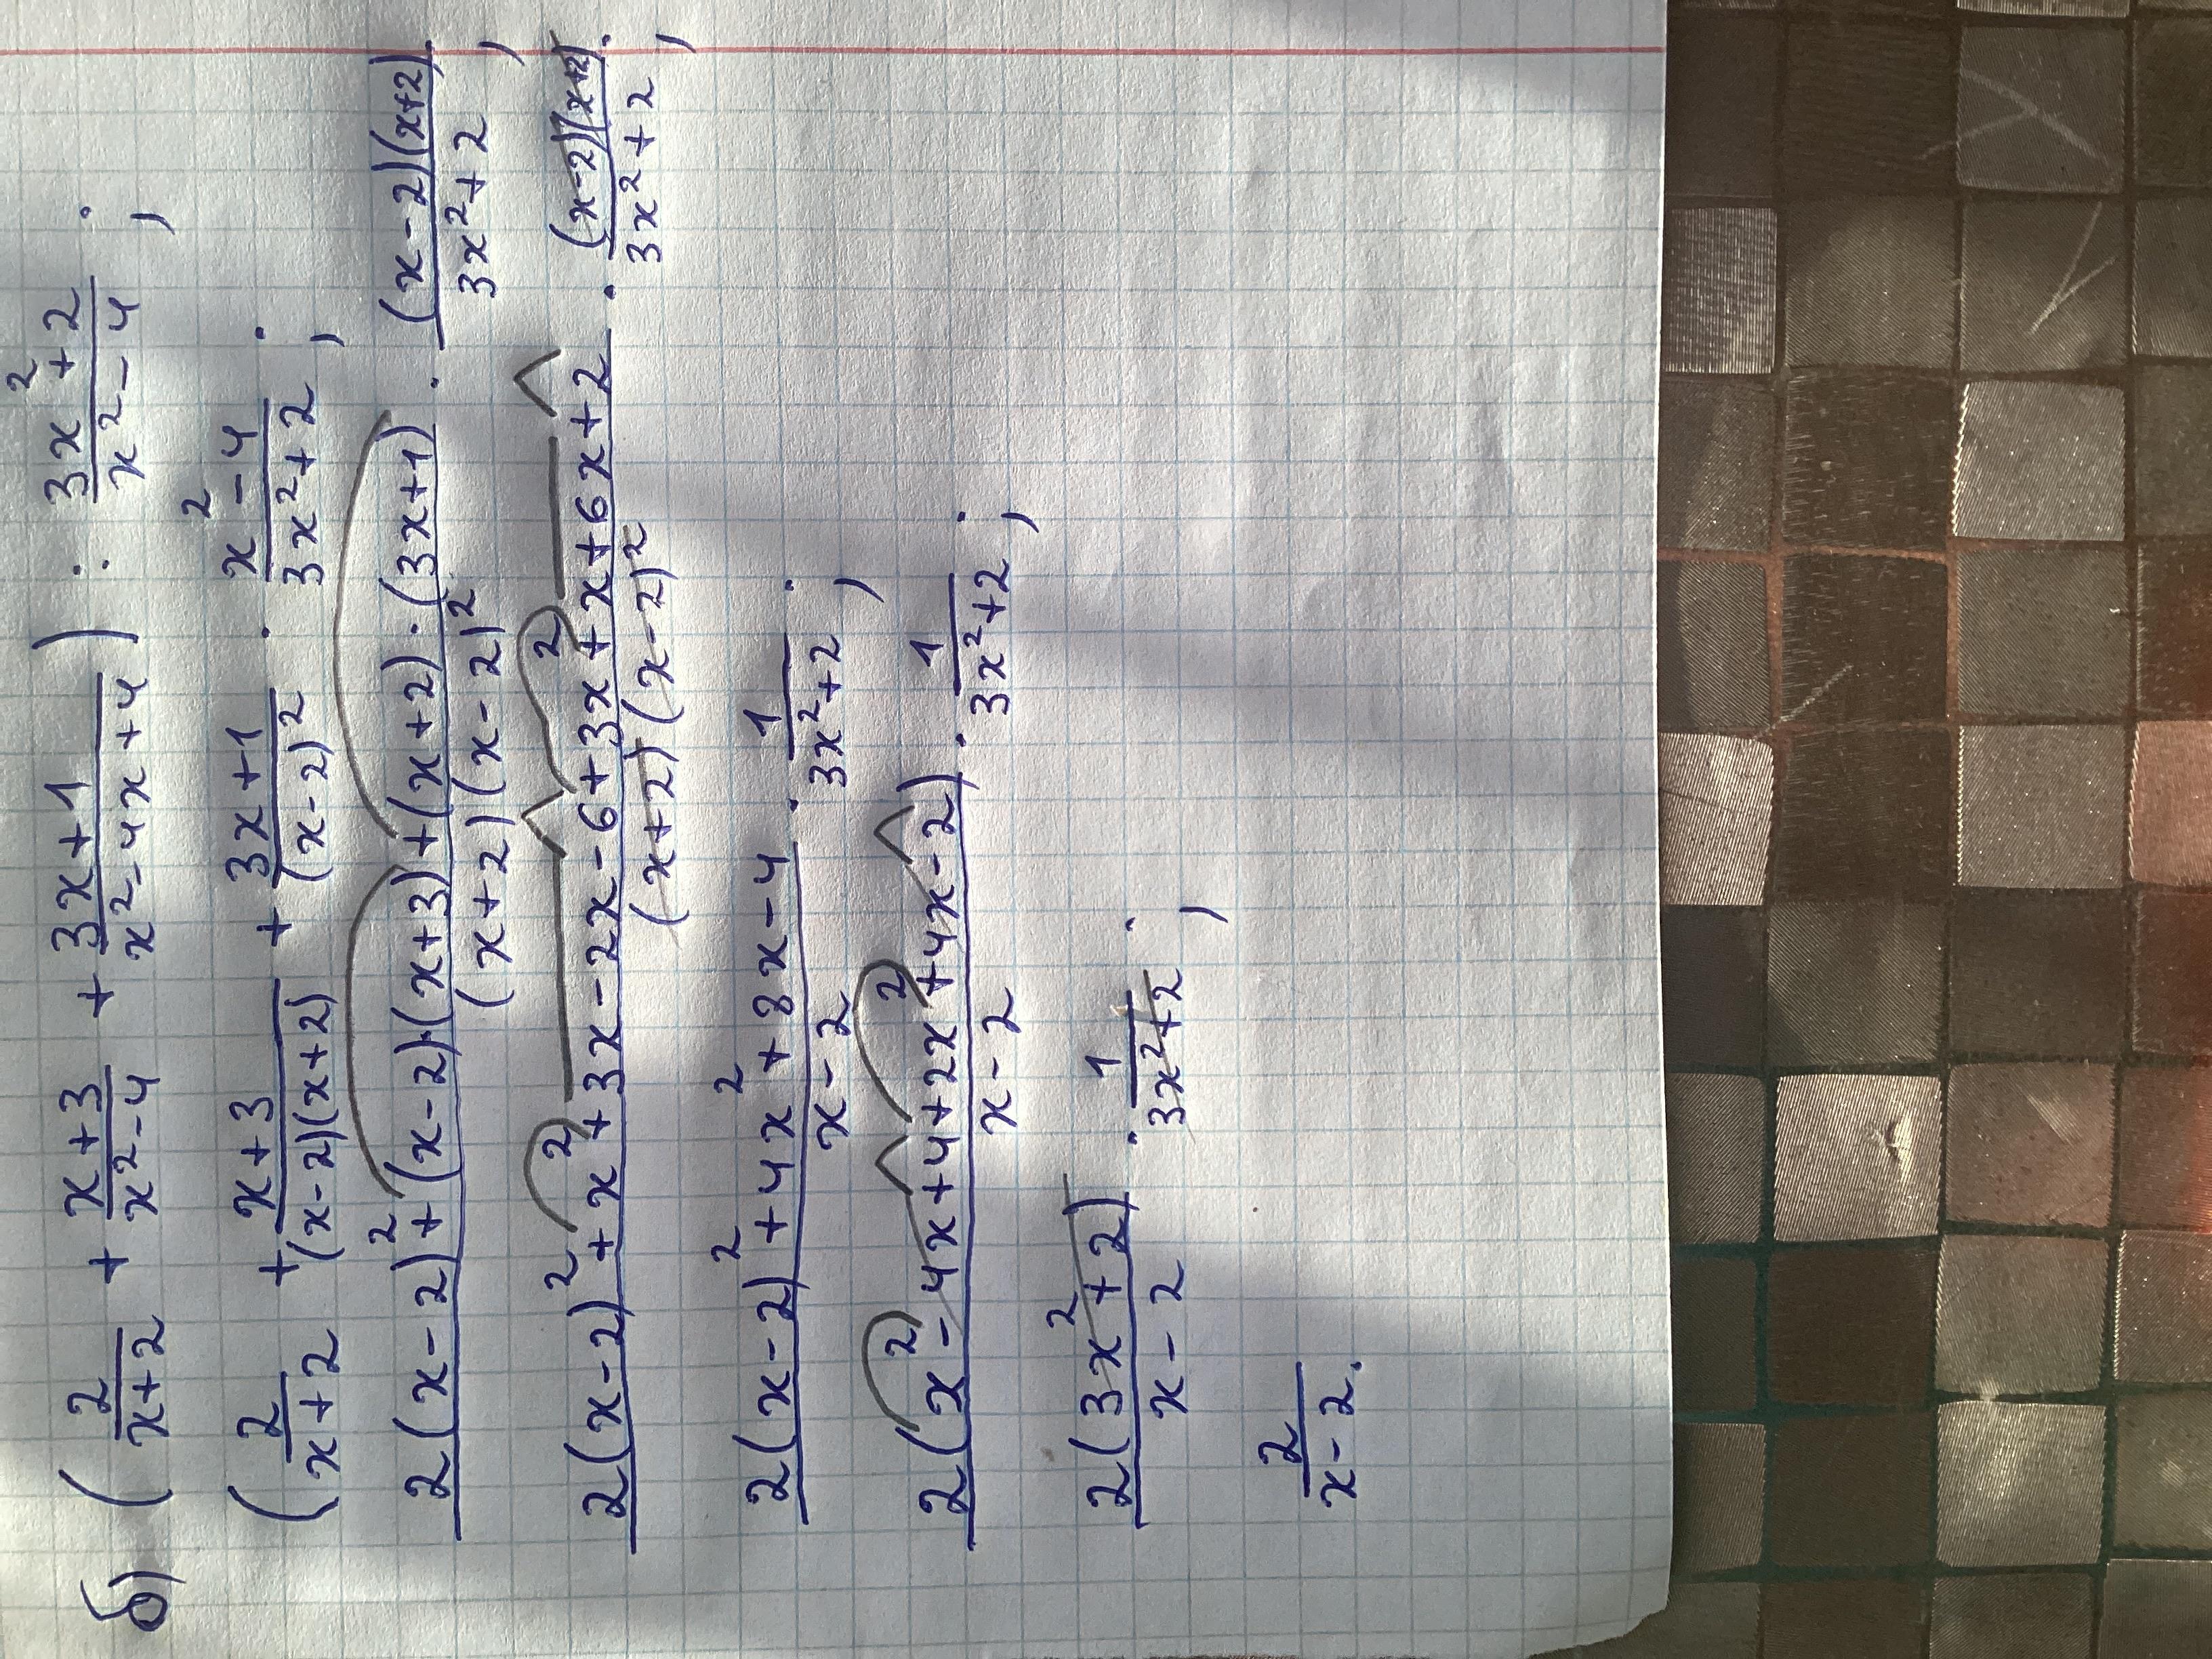 б) (2/(x+2) + (x+3)/(x²-4) + (3x+1)/(x²-4x+4)) : (3x²+2)/(x²-4);
(2/(x+2) + (x+3)/((x-2)(x+2)) + (3x+1)/(x-2)² · (x²-4)/(3x²+2);
(2(x-2)²+(x-2)·(x+3)+(x+2)·(3x+1))/((x+2)(x-2)²) · ((x-2)(x+2))/(3x²+2);
(2(x-2)²+x²+3x-2x-6+3x²+x+6x+2)/((x+2)(x-2)²) · ((x-2)(x+2))/(3x²+2);
(2(x-2)²+4x²+8x-4)/(x-2) · 1/(3x²+2);
(2(x²-4x+4+2x²+4x-2))/(x-2) · 1/(3x²+2);
(2(3x²+2))/(x-2) · 1/(3x²+2);
2/(x-2).